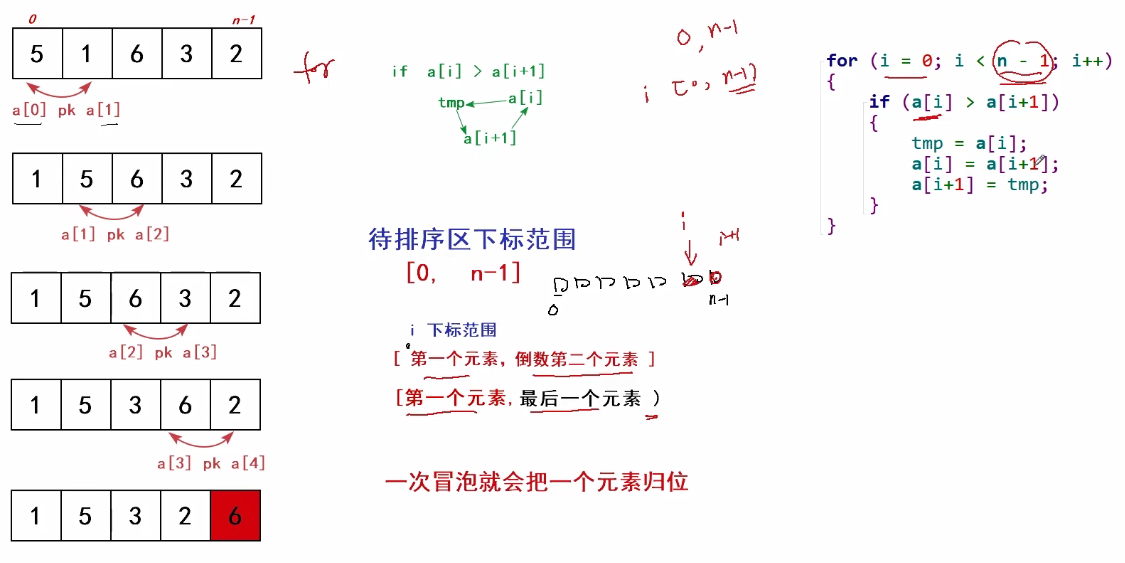 0 n-1
5 1 6 3 2
a[0] pk a[1]
1 5 6 3 2
a[1] pk a[2]
1 5 6 3 2
a[2] pk a[3]
1 5 3 6 2
a[3] pk a[4]
1 5 3 2 6
for
if a[i] > a[i+1]
tmp a[i]
a[i+1]
待排序区下标范围
[0, n-1]
i
i+1
0
n-1
i 下标范围
[ 第一个元素, 倒数第二个元素 ]
[第一个元素, 最后一个元素 )
一次冒泡就会把一个元素归位
0, n-1
i [0, n-1)
for (i = 0; i < n - 1; i++)
{
if (a[i] > a[i+1])
{
tmp = a[i];
a[i] = a[i+1];
a[i+1] = tmp;
}
}